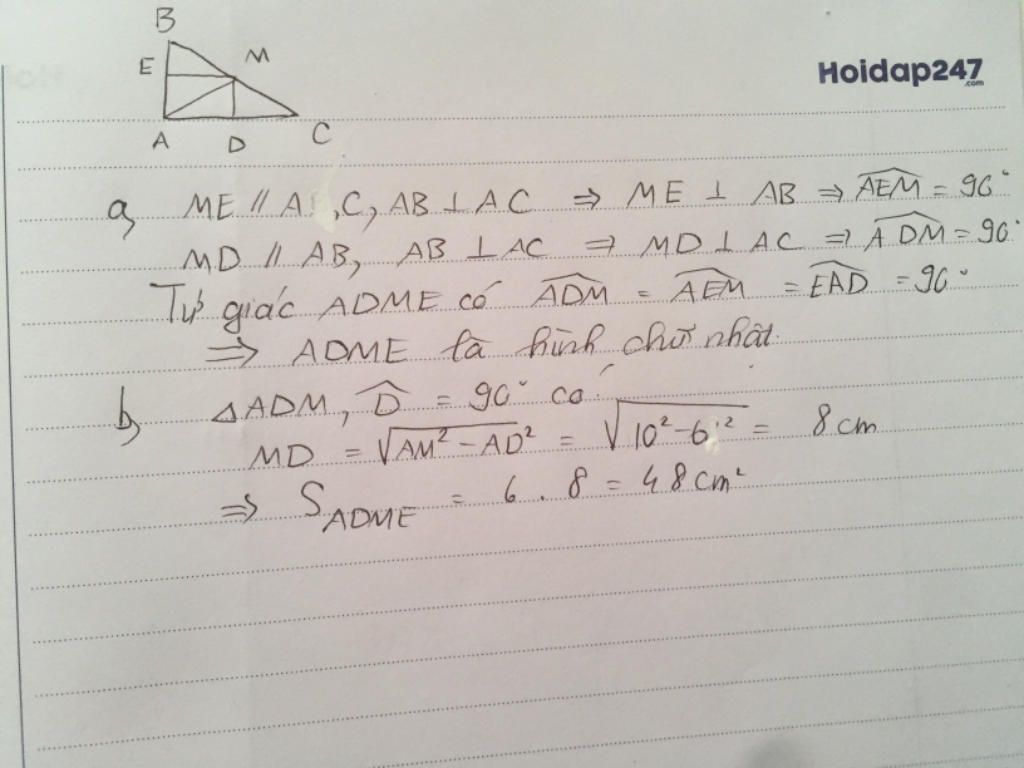 B
E
M
Hoidap247
.com
A
D
C
a, ME // A ,C, AB ⊥ AC ⇒ ME ⊥ AB ⇒ \widehat{AEM} = 90°
MD // AB, AB ⊥ AC ⇒ MD ⊥ AC ⇒ \widehat{ADM} = 90°
Tứ giác ADME có \widehat{ADM} = \widehat{AEM} = \widehat{EAD} = 90°
⇒ ADME là hình chữ nhật.
b, △ADM, \widehat{D} = 90° có
MD = √(AM² − AD²) = √(10² − 6²) = 8cm
⇒ S_{ADME} = 6 . 8 = 48cm²